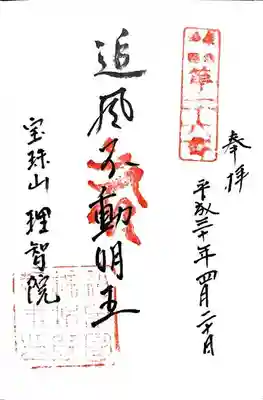 奉拝
平成三十年四月二十日
追風不動明王
宝珠山 理智院